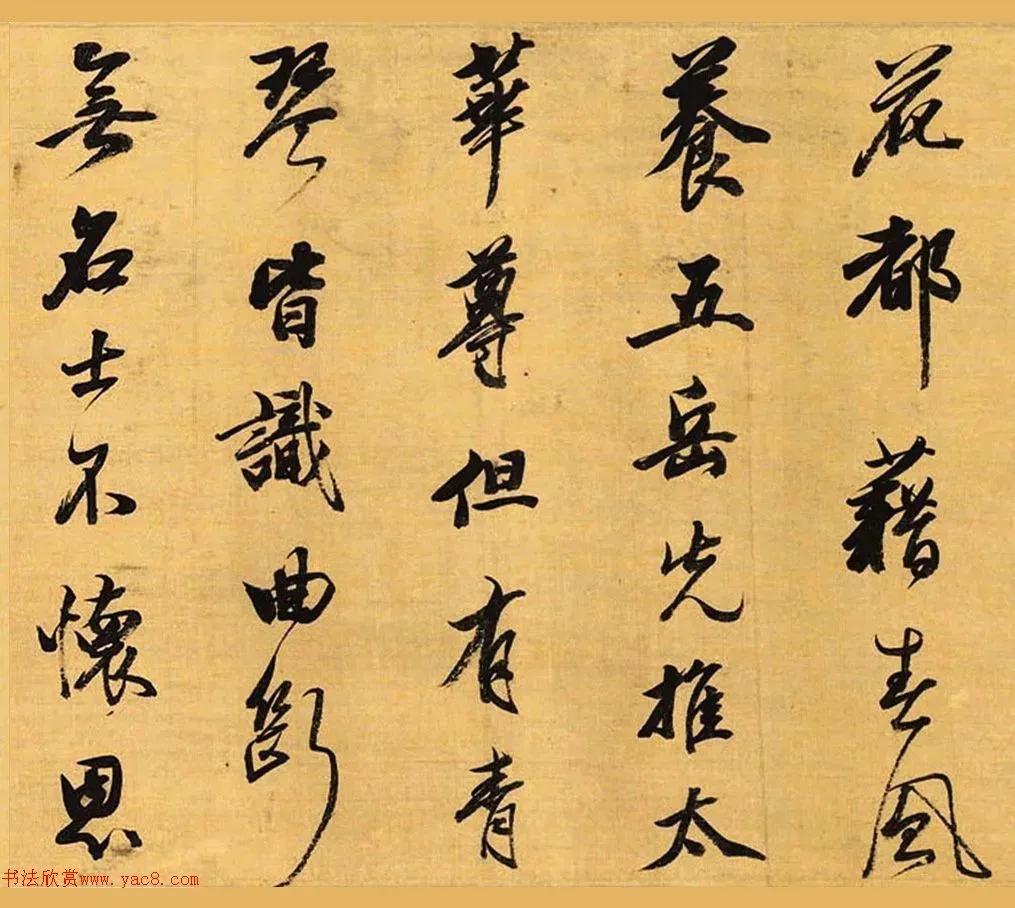 花都藉春風
養五岳先推太
華尊但有青
琴皆識曲斷
無名士不懷恩
书法欣赏www.yac8.com